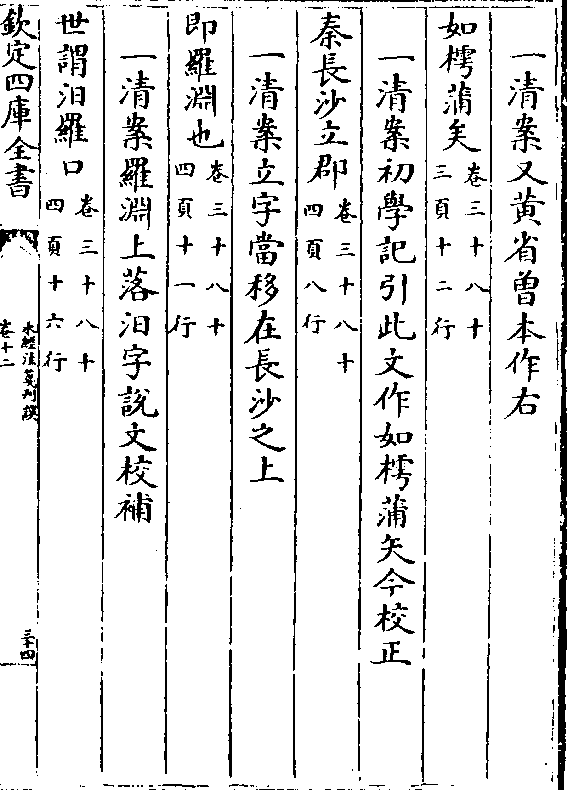 一清案又黃省曾本作右
如樗蒲矣卷三十八十三頁十二行
一清案初學記引此文作如樗蒲矢今校正
秦長沙立郡卷三十八十四頁八行
一清案立字當移在長沙之上
即羅淵也卷三十八十四頁十一行
一清案羅淵上落汨字說文校補
世謂汨羅口卷三十八十四頁十六行
欽定四庫全書
水經注箋刊誤
卷十二
三十四